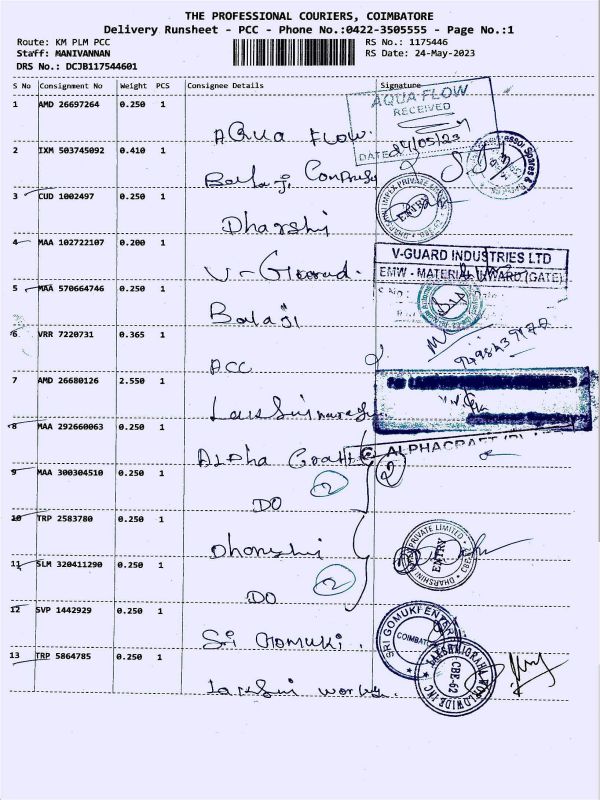 THE PROFESSIONAL COURIERS, COIMBATORE
Delivery Runsheet - PCC - Phone No.:0422-3505555 - Page No.:1
Route: KM PLM PCC
RS No.: 1175446
Staff: MANIVANNAN
RS Date: 24-May-2023
DRS No.: DCJB117544601
S No Consignment No Weight PCS Consignee Details Signature
1 AMD 26697264 0.250 1
AQUA FLOW
RECEIVED
DATE 24/05/23
AQUA FLOW.
2 IXM 503745092 0.410 1
Balaji
3 CUD 1002497 0.250 1
ENTRY
Dharshi
4 MAA 102722107 0.200 1
V-GUARD INDUSTRIES LTD
EMW - MATERIAL INWARD (GATE)
V-Guard.
5 MAA 570664746 0.250 1
Balaji
6 VRR 7220731 0.365 1
ACC
7 AMD 26680126 2.550 1
8 MAA 292660063 0.250 1
ALPHACRAFT
Alpha Craft
9 MAA 300304510 0.250 1
2
2
DO
10 TRP 2583780 0.250 1
DHARSHINI PRIVATE LIMITED
ENTRY
Dharshini
11 SLM 320411290 0.250 1
2
DO
12 SVP 1442929 0.250 1
SRI GOMUKI ENTER
COIMBATO
Sri Gomuki.
13 TRP 5864785 0.250 1
LAKSHMIGRAHA WORLDWIDE INC
CBE-62